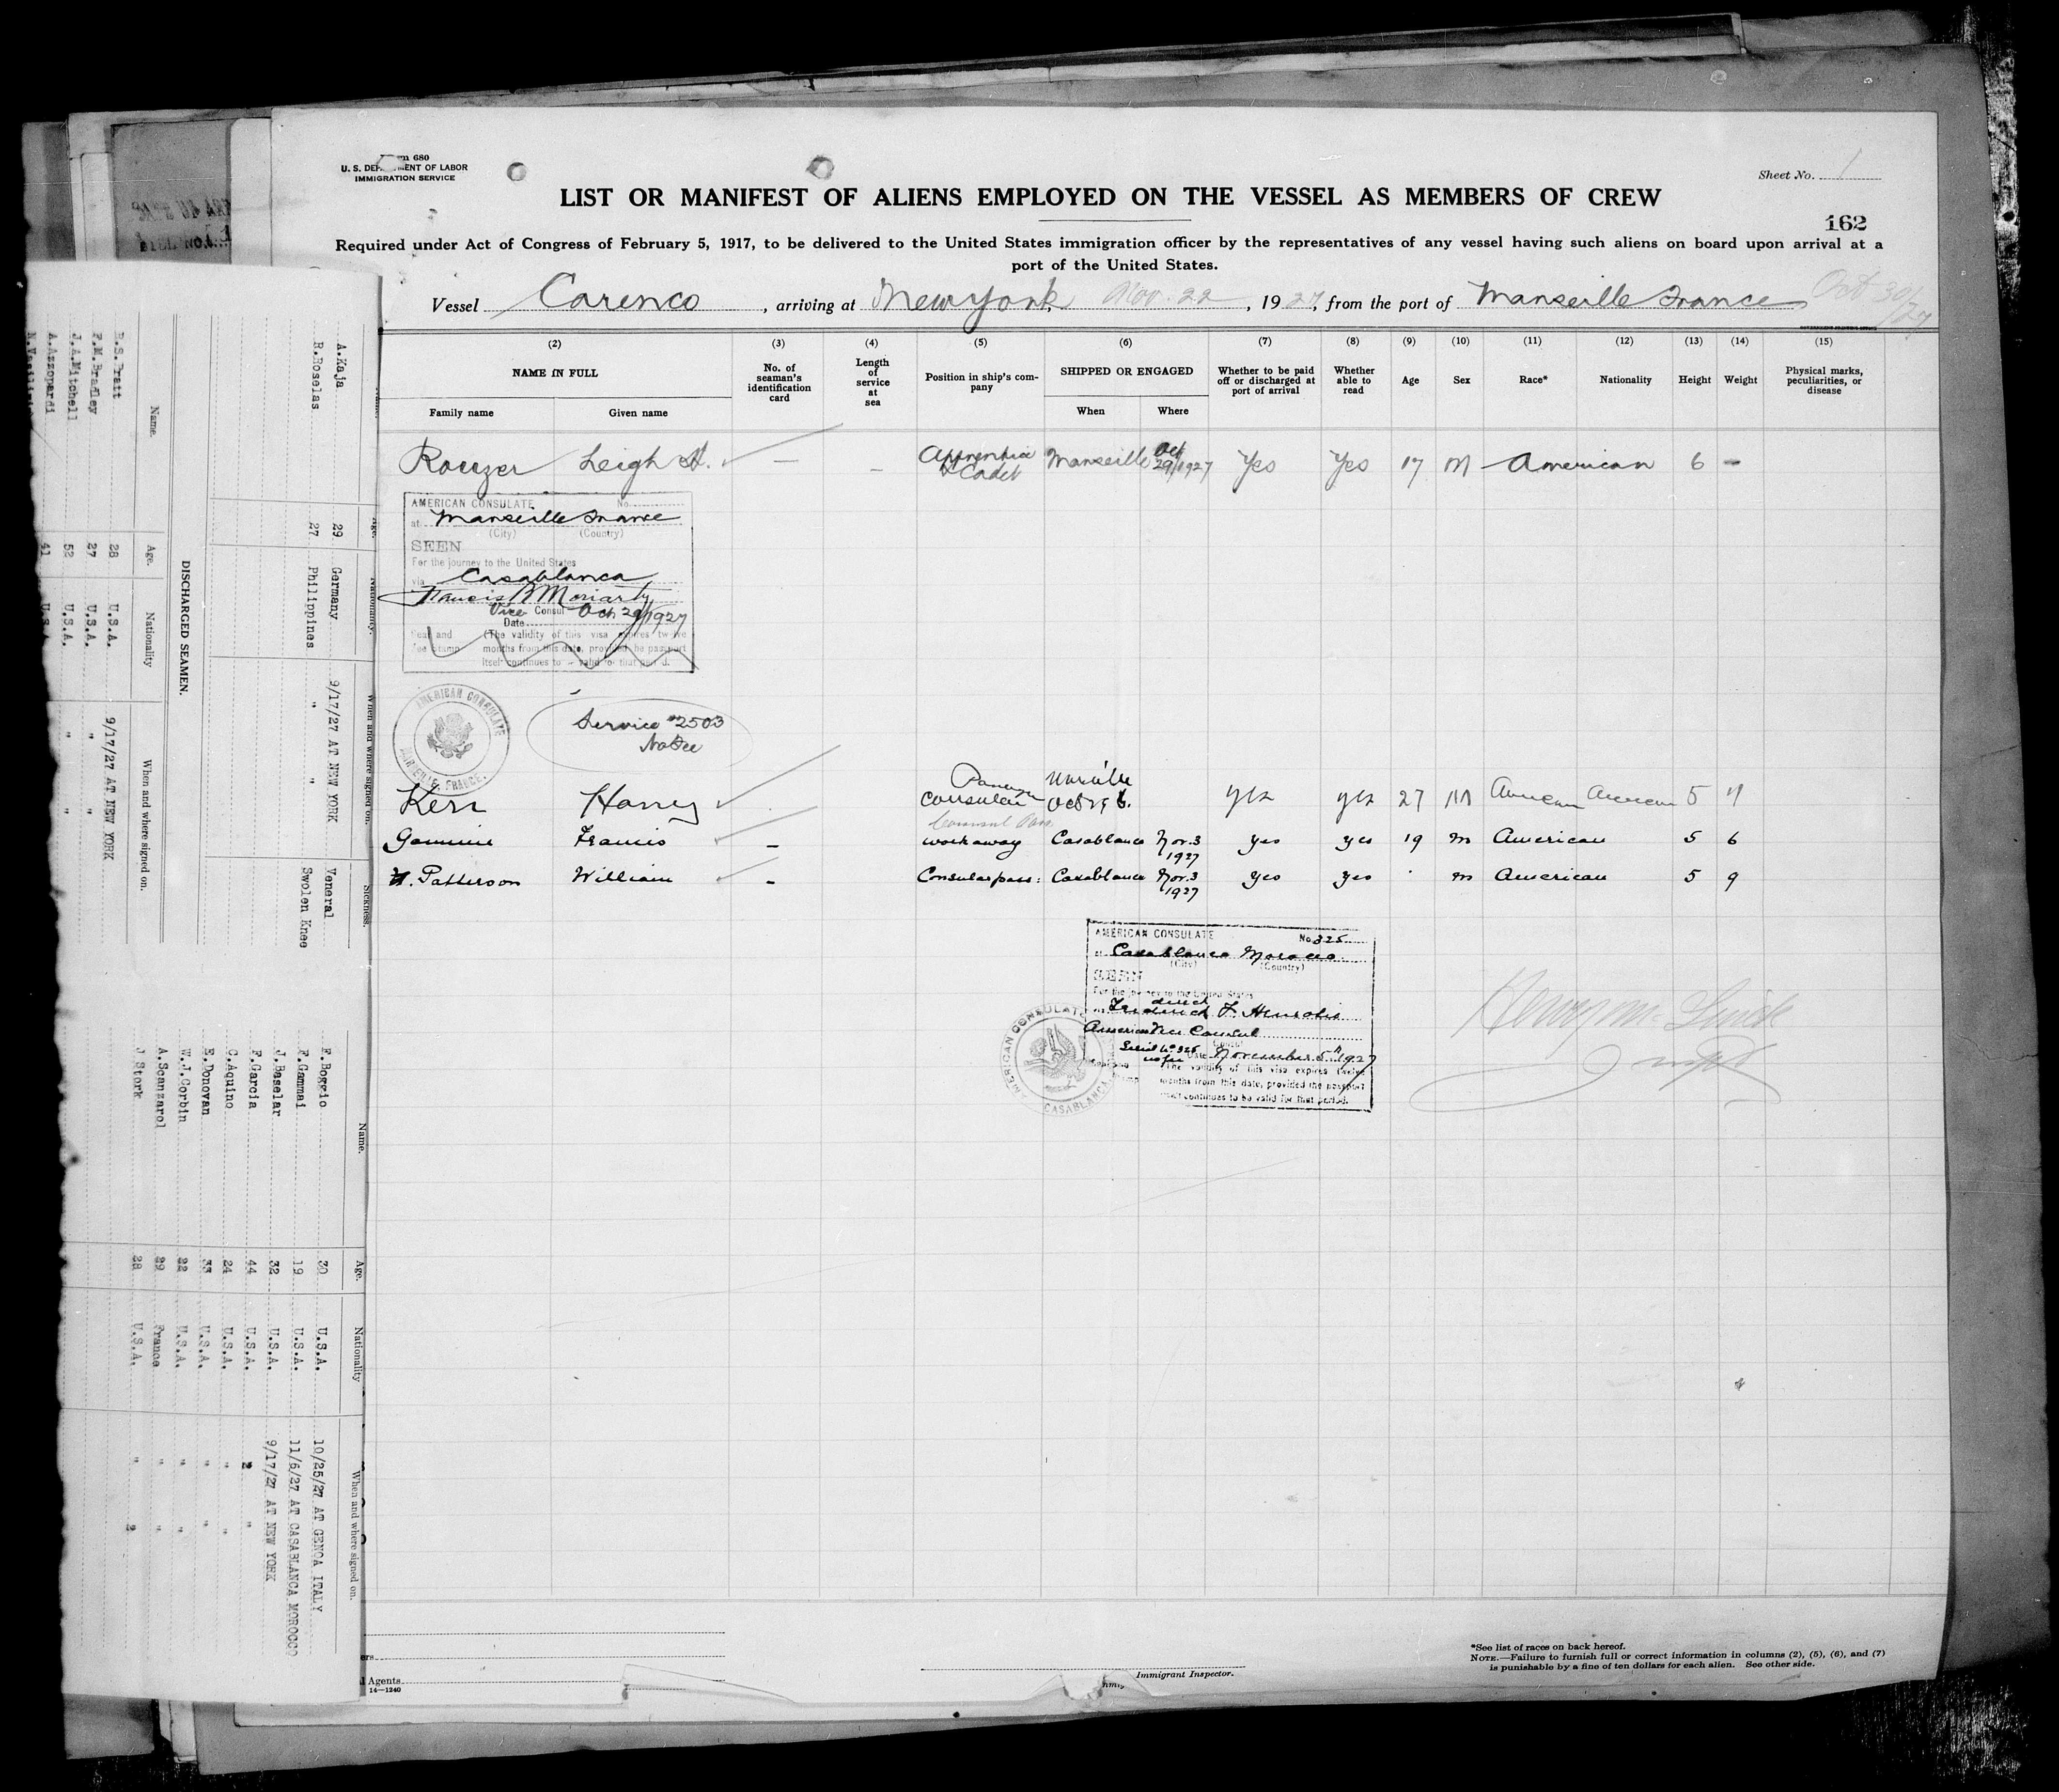 Form 680
U. S. DEPARTMENT OF LABOR
IMMIGRATION SERVICE
Sheet No. 1
LIST OR MANIFEST OF ALIENS EMPLOYED ON THE VESSEL AS MEMBERS OF CREW
162
Required under Act of Congress of February 5, 1917, to be delivered to the United States immigration officer by the representatives of any vessel having such aliens on board upon arrival at a
port of the United States.
Vessel Carenco, arriving at New York, Nov. 22, 1927, from the port of Marseille France Oct 30/27
(2) (3) (4) (5) (6) (7) (8) (9) (10) (11) (12) (13) (14) (15)
NAME IN FULL
Family name Given name
No. of seaman's identification card
Length of service at sea
Position in ship's company
SHIPPED OR ENGAGED
When Where
Whether to be paid off or discharged at port of arrival
Whether able to read
Age
Sex
Race*
Nationality
Height
Weight
Physical marks, peculiarities, or disease
Rouzer Leigh H. — — Cadet Marseille Oct 29/1927 Yes Yes 17 M American 6 —
AMERICAN CONSULATE No.
at Marseille France
(City) (Country)
SEEN
For the journey to the United States
via Casablanca
Francis B Moriarty
Vice Consul
Date Oct 29/1927
Seal and (The validity of this visa expires twelve
fee stamp months from this date, provided the passport
itself continues to be valid for that period.
AMERICAN CONSULATE
MARSEILLE, FRANCE.
Service #2503
No Fee
Kerr Harry Consular Marseille Oct 29 yes yes 27 M American American 5 11
Gammie Francis — workaway Casablanca Nov. 3 1927 yes yes 19 m American 5 6
Patterson William — Consular pass: Casablanca Nov. 3 1927 Yes Yes m American 5 9
AMERICAN CONSULATE No 325
at Casablanca Morocco
(City) (Country)
SEEN
For the journey to the United States
direct
American Vice Consul
Serial No 325
no fee Date November 5th 1927
The validity of this visa expires twelve
months from this date, provided the passport
itself continues to be valid for that period.
AMERICAN CONSULATE
CASABLANCA
*See list of races on back hereof.
NOTE.—Failure to furnish full or correct information in columns (2), (5), (6), and (7)
is punishable by a fine of ten dollars for each alien. See other side.
Immigrant Inspector.
Agents
14—1240
Age. Nationality. When and where signed on. Sickness.
A.Kaja 29 Germany 9/17/27 AT NEW YORK Veneral
R.Roselas 27 Philippines " " Swolen Knee
DISCHARGED SEAMEN.
Name. Age. Nationality When and where signed on.
B.S.Pratt 28 U.S.A. 9/17/27 AT NEW YORK
F.M.Bradley 27 U.S.A. " "
J.A.Mitchell 52 U.S.A. " "
A.Azzopardi 41 U.S.A.
Name. Age. Nationality When and where signed on.
F.Boggio 30 U.S.A. 10/25/27 AT GENOA ITALY
F.Gammai 19 U.S.A. 11/6/27 AT CASABLANCA MOROCCO
J.Baselar 32 U.S.A. 9/17/27 AT NEW YORK
F.Garcia 44 U.S.A. " "
C.Aquino 24 U.S.A. " "
E.Donovan 33 U.S.A. " "
W.J.Corbin 22 U.S.A. " "
A.Scanzarol 29 France " "
J Stork 28 U.S.A. " "